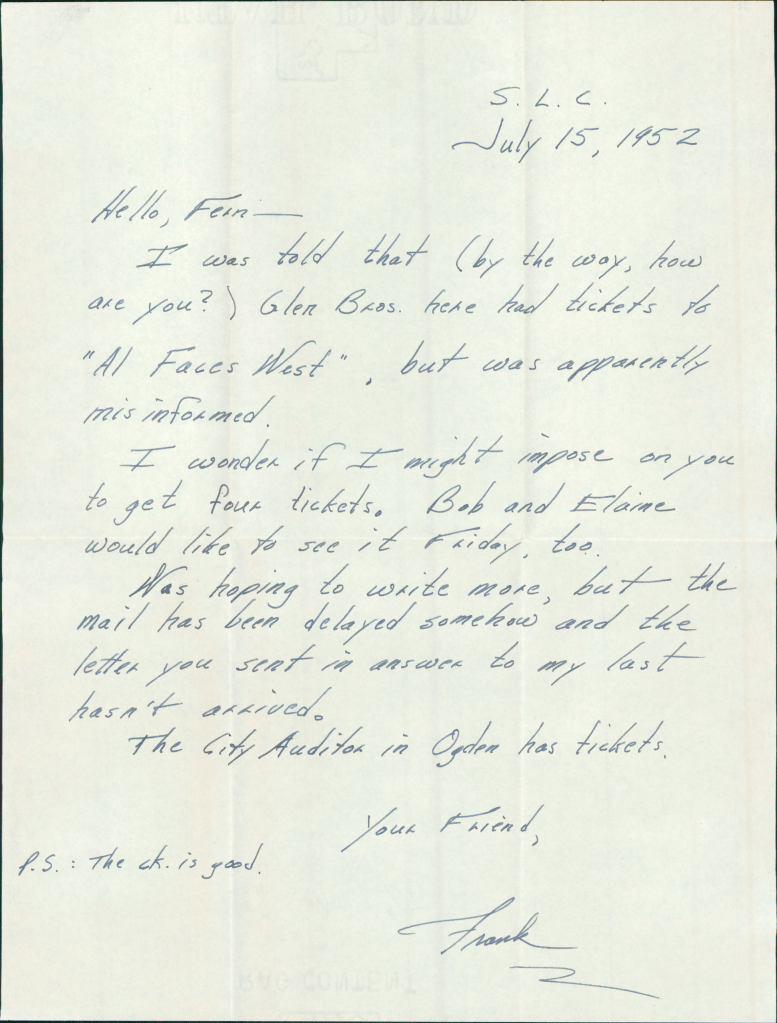 S. L. C.
July 15, 1952
Hello, Fern—
I was told that (by the way, how
are you?) Glen Bros. here had tickets to
"Al Faces West", but was apparently
misinformed.
I wonder if I might impose on you
to get four tickets. Bob and Elaine
would like to see it Friday, too.
Was hoping to write more, but the
mail has been delayed somehow and the
letter you sent in answer to my last
hasn't arrived.
The City Auditor in Ogden has tickets.
Your Friend,
P.S.: The ck. is good.
Frank
RAG CONTENT